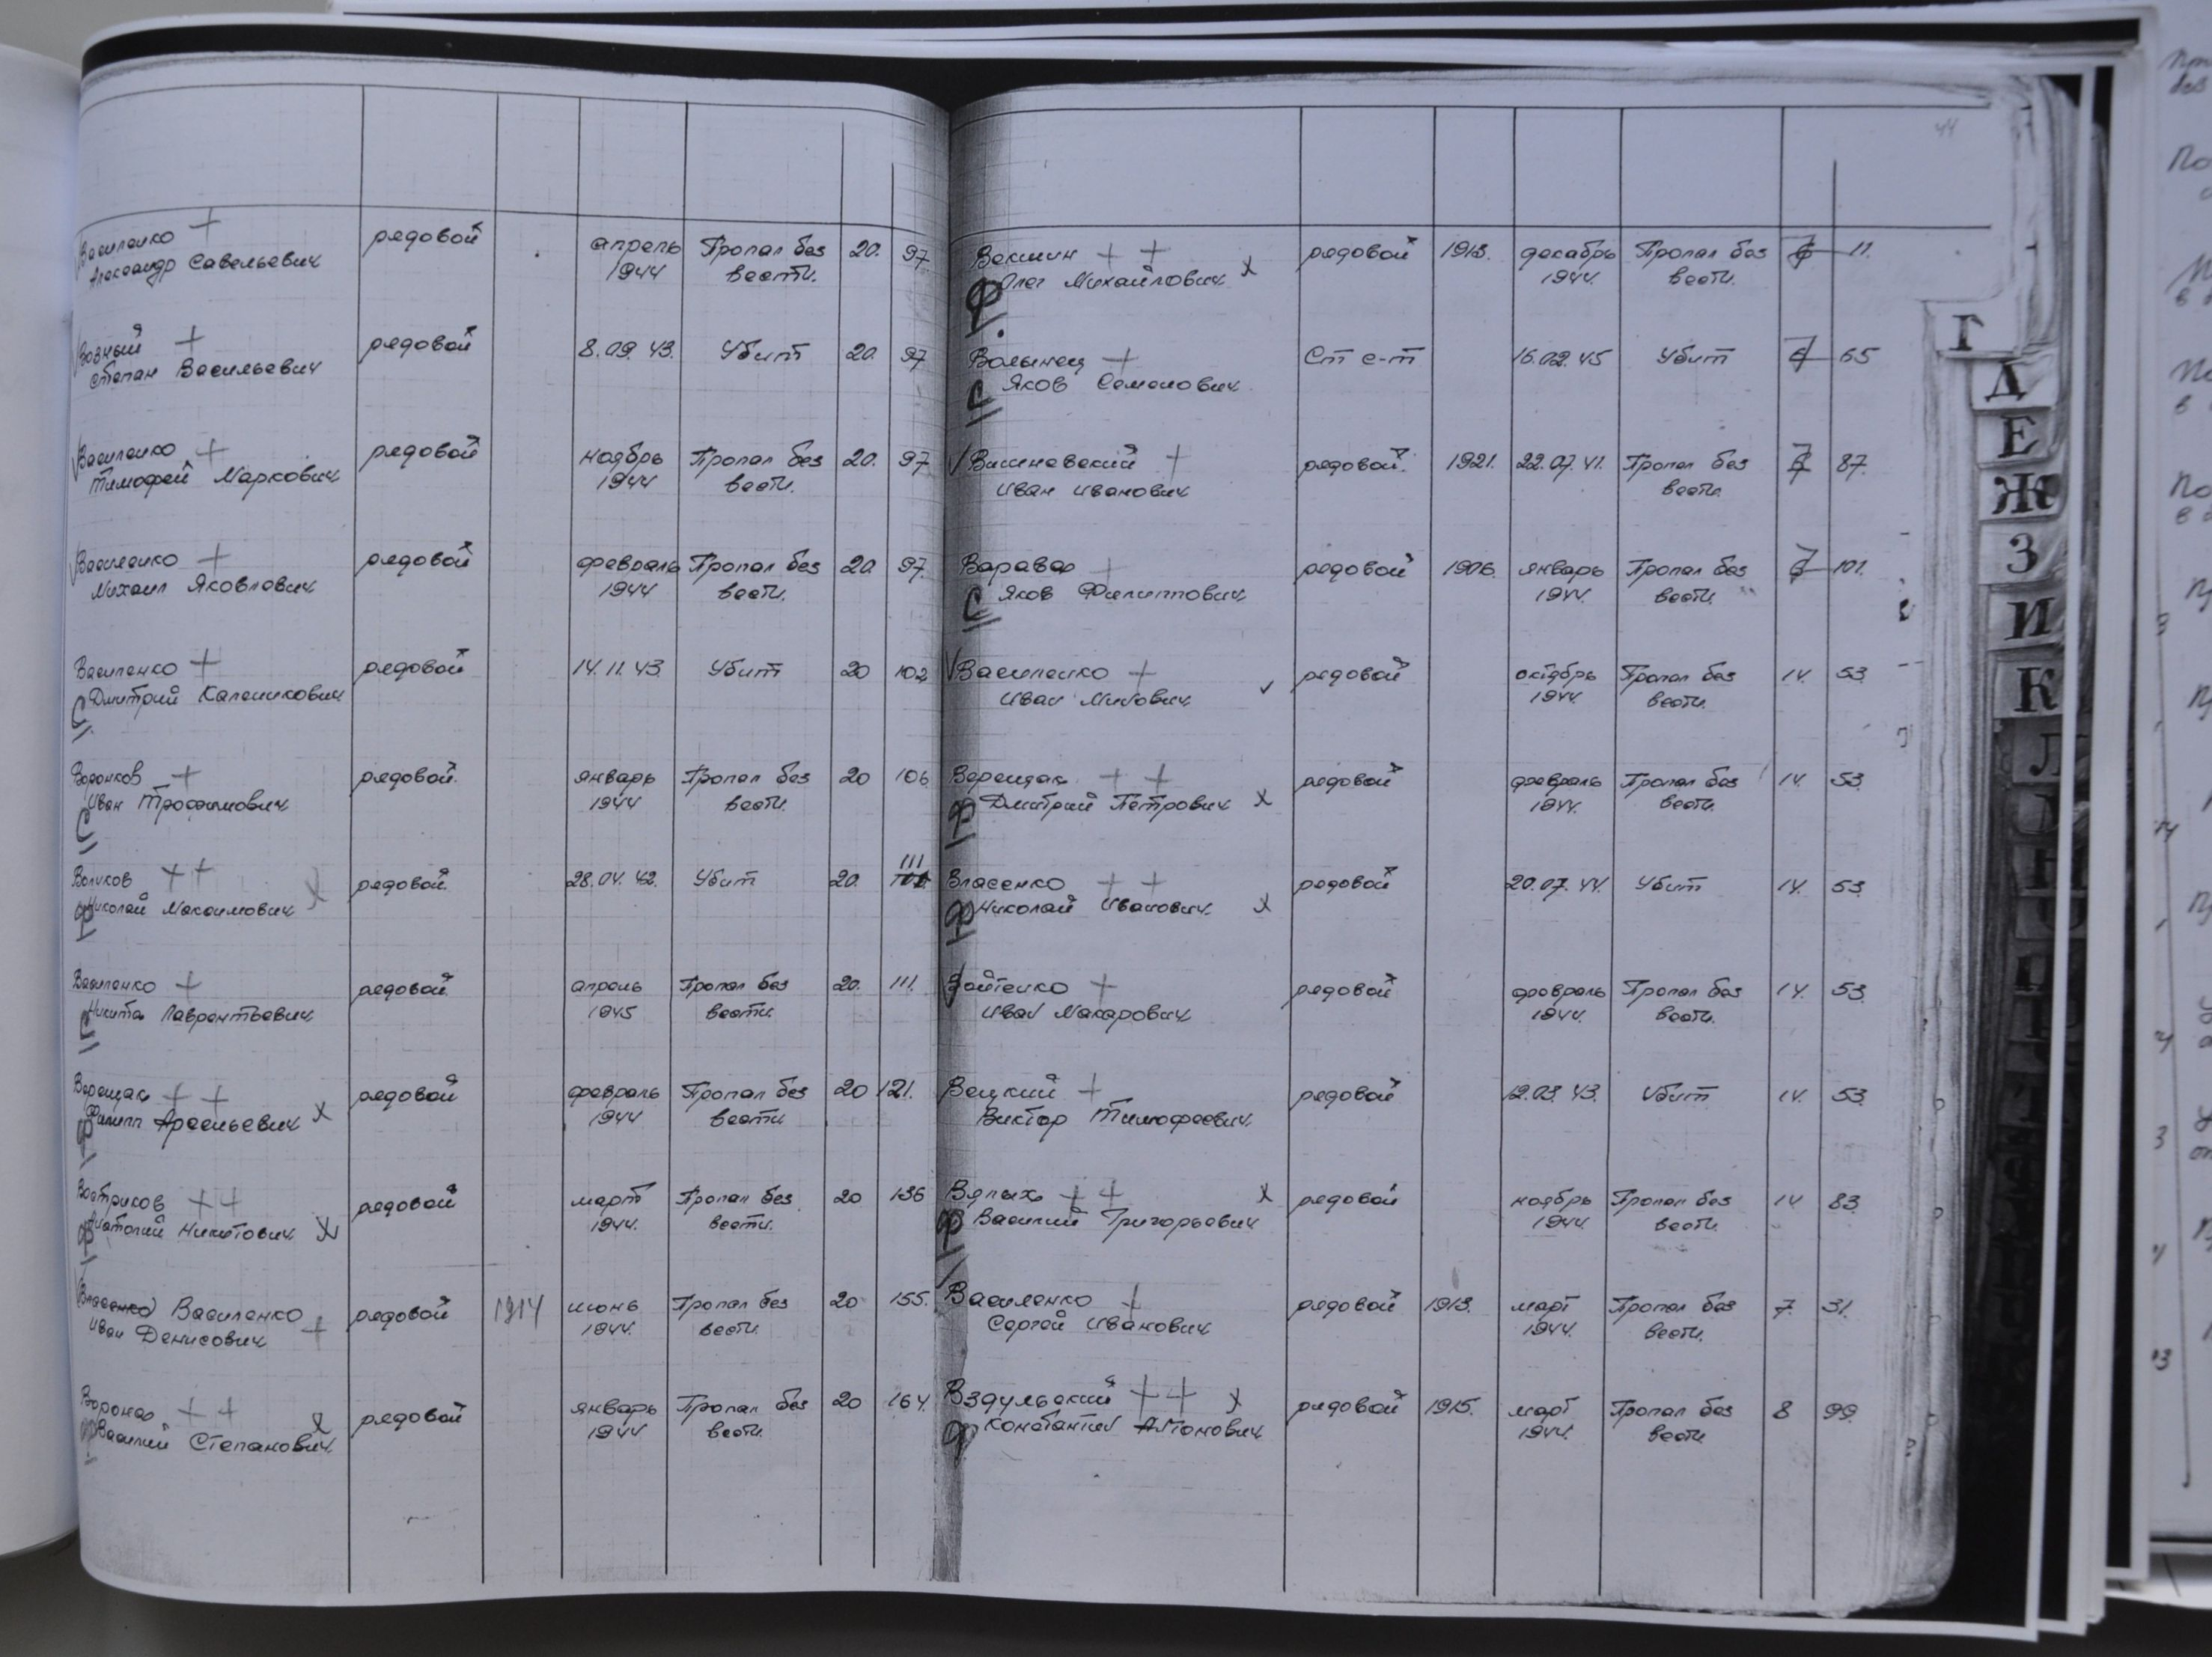 Василенко + рядовой апрель Пропал без 20. 97
Александр Савельевич 1944 вести.
Вовный + рядовой 8.09.43. Убит 20. 97
Степан Васильевич
Василенко + рядовой ноябрь Пропал без 20. 97
Тимофей Маркович 1944 вести.
Василенко + рядовой февраль Пропал без 20. 97
Михаил Яковлевич 1944 вести.
Василенко + рядовой 14.11.43. Убит 20 102
С Дмитрий Каленикович
Воронков + рядовой. январь Пропал без 20 106
С Иван Трофимович 1944 вести.
Волков ++ х рядовой. 28.04.42. Убит 20. 111
Ф Николай Максимович
Василенко + рядовой апрель Пропал без 20. 111.
С Никита Лаврентьевич 1945 вести.
Верещак ++ х рядовой февраль Пропал без 20 121.
Ф Филипп Арсеньевич 1944 вести
Востриков ++ х рядовой март Пропал без 20 136
Ф Анатолий Никитович 1944. вести.
(Власенко) Василенко + рядовой 1914 июнь Пропал без 20 155.
Иван Денисович 1944. вести.
Ворона ++ х рядовой январь Пропал без 20 164.
Ф Василий Степанович 1944 вести.
44
++ х рядовой 1913. декабрь Пропал без 11.
Ф. Олег Михайлович 1944. вести.
Волынец + Ст с-т 16.02.45 Убит 65
С Яков Семенович
Вишневский + рядовой. 1921. 22.07.41. Пропал без 87.
Иван Иванович вести.
Варава + рядовой 1906. январь Пропал без 101.
С Яков Филиппович 1944. вести.
Василенко + рядовой октябрь Пропал без 14. 53.
Иван 1944. вести.
Верещак ++ х рядовой февраль Пропал без 14. 53.
Ф Дмитрий Петрович 1944. вести.
Власенко ++ х рядовой 20.07.44. Убит 14. 53
Ф Николай Иванович
Войтенко + рядовой февраль Пропал без 14. 53.
Иван Макарович 1944. вести.
Вецкий + рядовой 12.03.43. Убит 14. 53.
Виктор Тимофеевич
Вялых ++ х рядовой ноябрь Пропал без 14 83.
Ф Василий Григорьевич 1944. вести.
Василенко + рядовой 1913. март Пропал без 7. 31.
Сергей Иванович 1944. вести.
Вздульский ++ х рядовой 1915. март Пропал без 8 99.
Ф Константин Антонович 1944. вести.
Г
Д
Е
Ж
З
И
К
Л